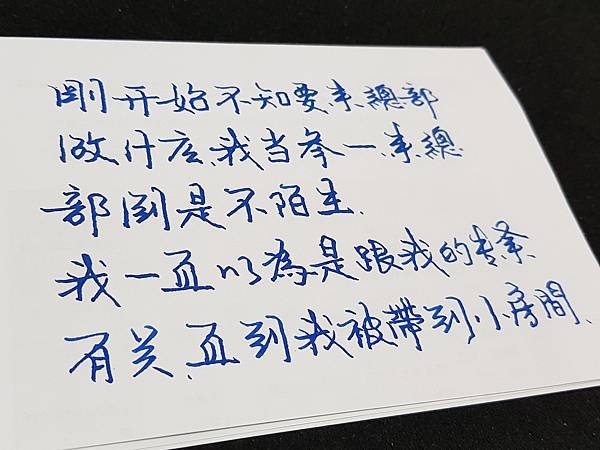 剛开始不知要来總部
做什庅、我当条一来總
部倒是不陌生.
我一直以為是跟我的专案
有关、直到我被帶到小房間、